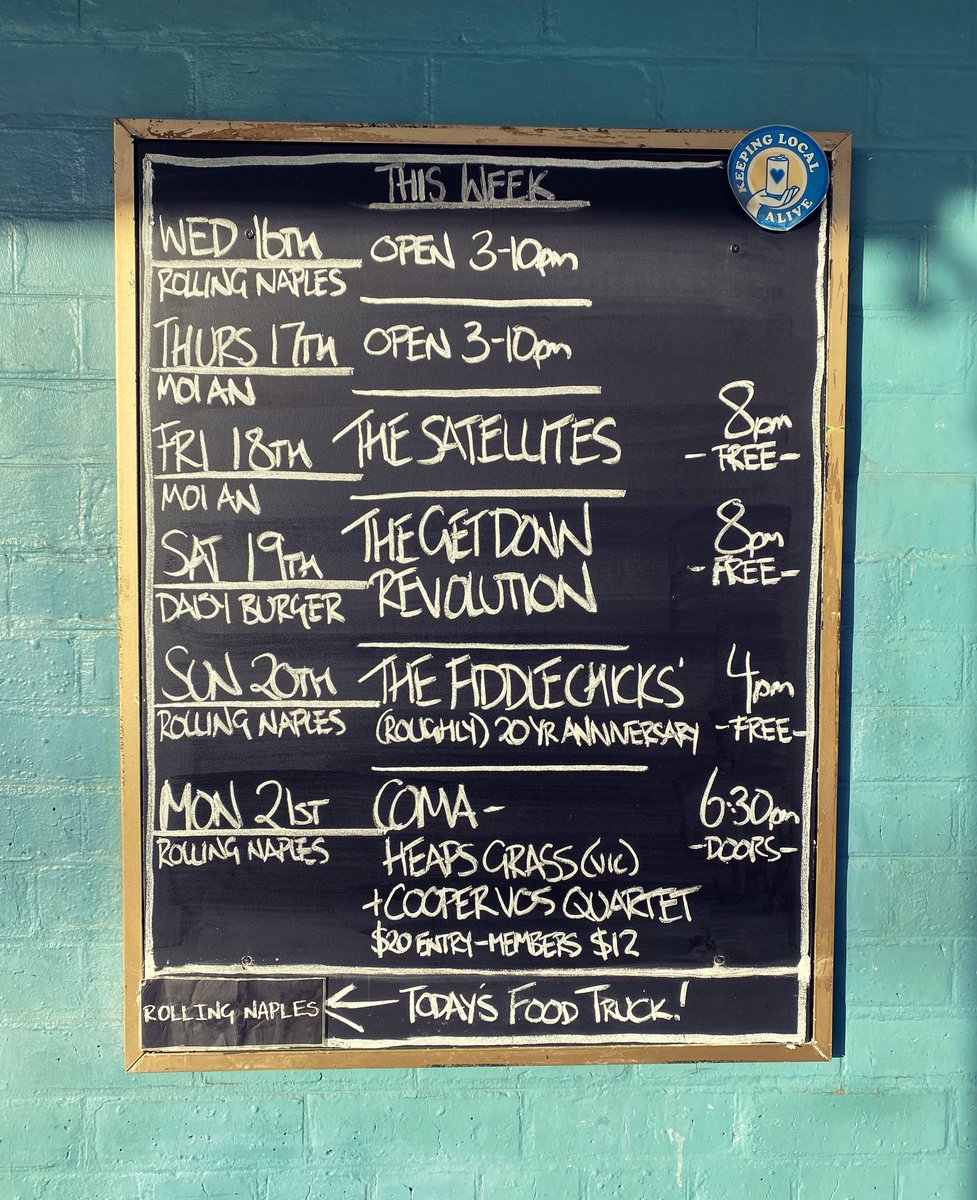 KEEPING LOCAL
ALIVE
THIS WEEK
WED 16TH OPEN 3-10pm
ROLLING NAPLES
THURS 17TH OPEN 3-10pm
MOI AN
FRI 18TH THE SATELLITES 8pm
-FREE-
MOI AN
SAT 19TH THE GET DOWN 8pm
REVOLUTION -FREE-
DAISY BURGER
SUN 20TH THE FIDDLECHICKS' 4pm
ROLLING NAPLES (ROUGHLY) 20YR ANNIVERSARY -FREE-
MON 21ST COMA- 6:30pm
ROLLING NAPLES HEAPS GRASS (VIC) -DOORS-
+COOPER VOS QUARTET
$20 ENTRY-MEMBERS $12
ROLLING NAPLES ← TODAY'S FOOD TRUCK!